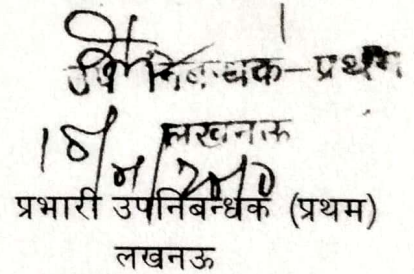 उप निबन्धक-प्रथम
लखनऊ
प्रभारी उपनिबन्धक (प्रथम)
लखनऊ